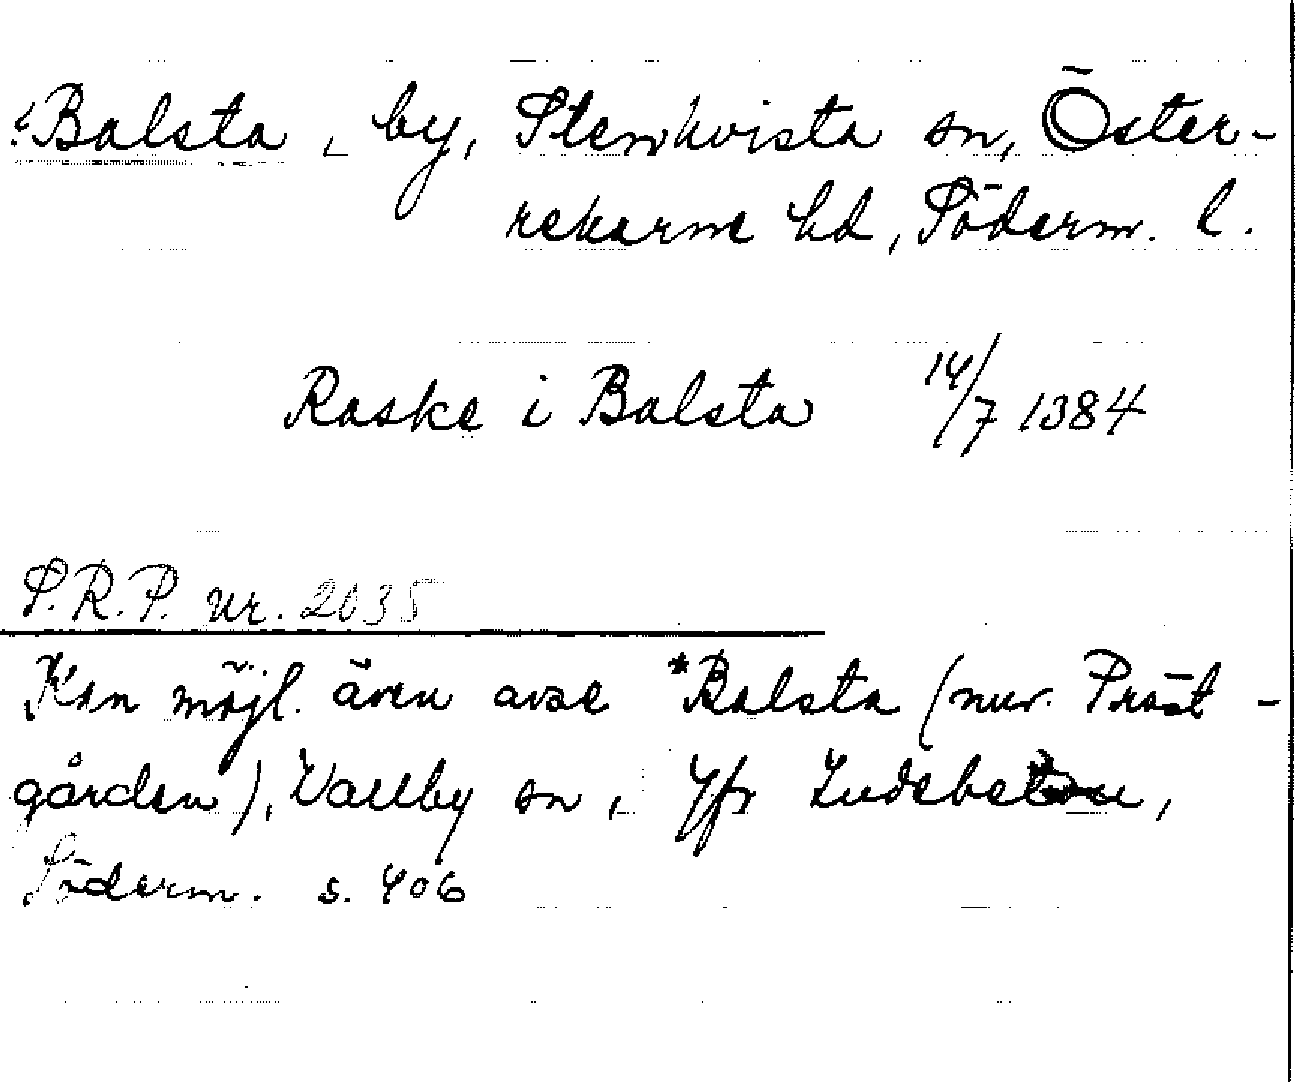 Balsta, by, Stenkvista sn, Öster-
rekarne hd, Söderm. l.
Raske i Balsta 14/7 1384
S.R.P. nr. 2035
Kan möjl. även avse *Balsta (nuv. Präst-
gården), Vallby sn, Jfr
Söderm. s. 406